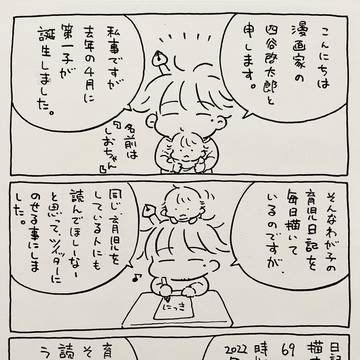 こんにちは
漫画家の
四谷啓太郎と
申します。
私事ですが
去年の4月に
第一子が
誕生しました。
名前は
「しおちゃん」
そんなわが子の
育児日記を
毎日描いて
いるのですが、
同じ育児を
している人にも
読んでほしいなー
と思って、ツイッターに
のせる事にしま
した。
にっき
日記
描
69
時
2022
育
そ
読
う